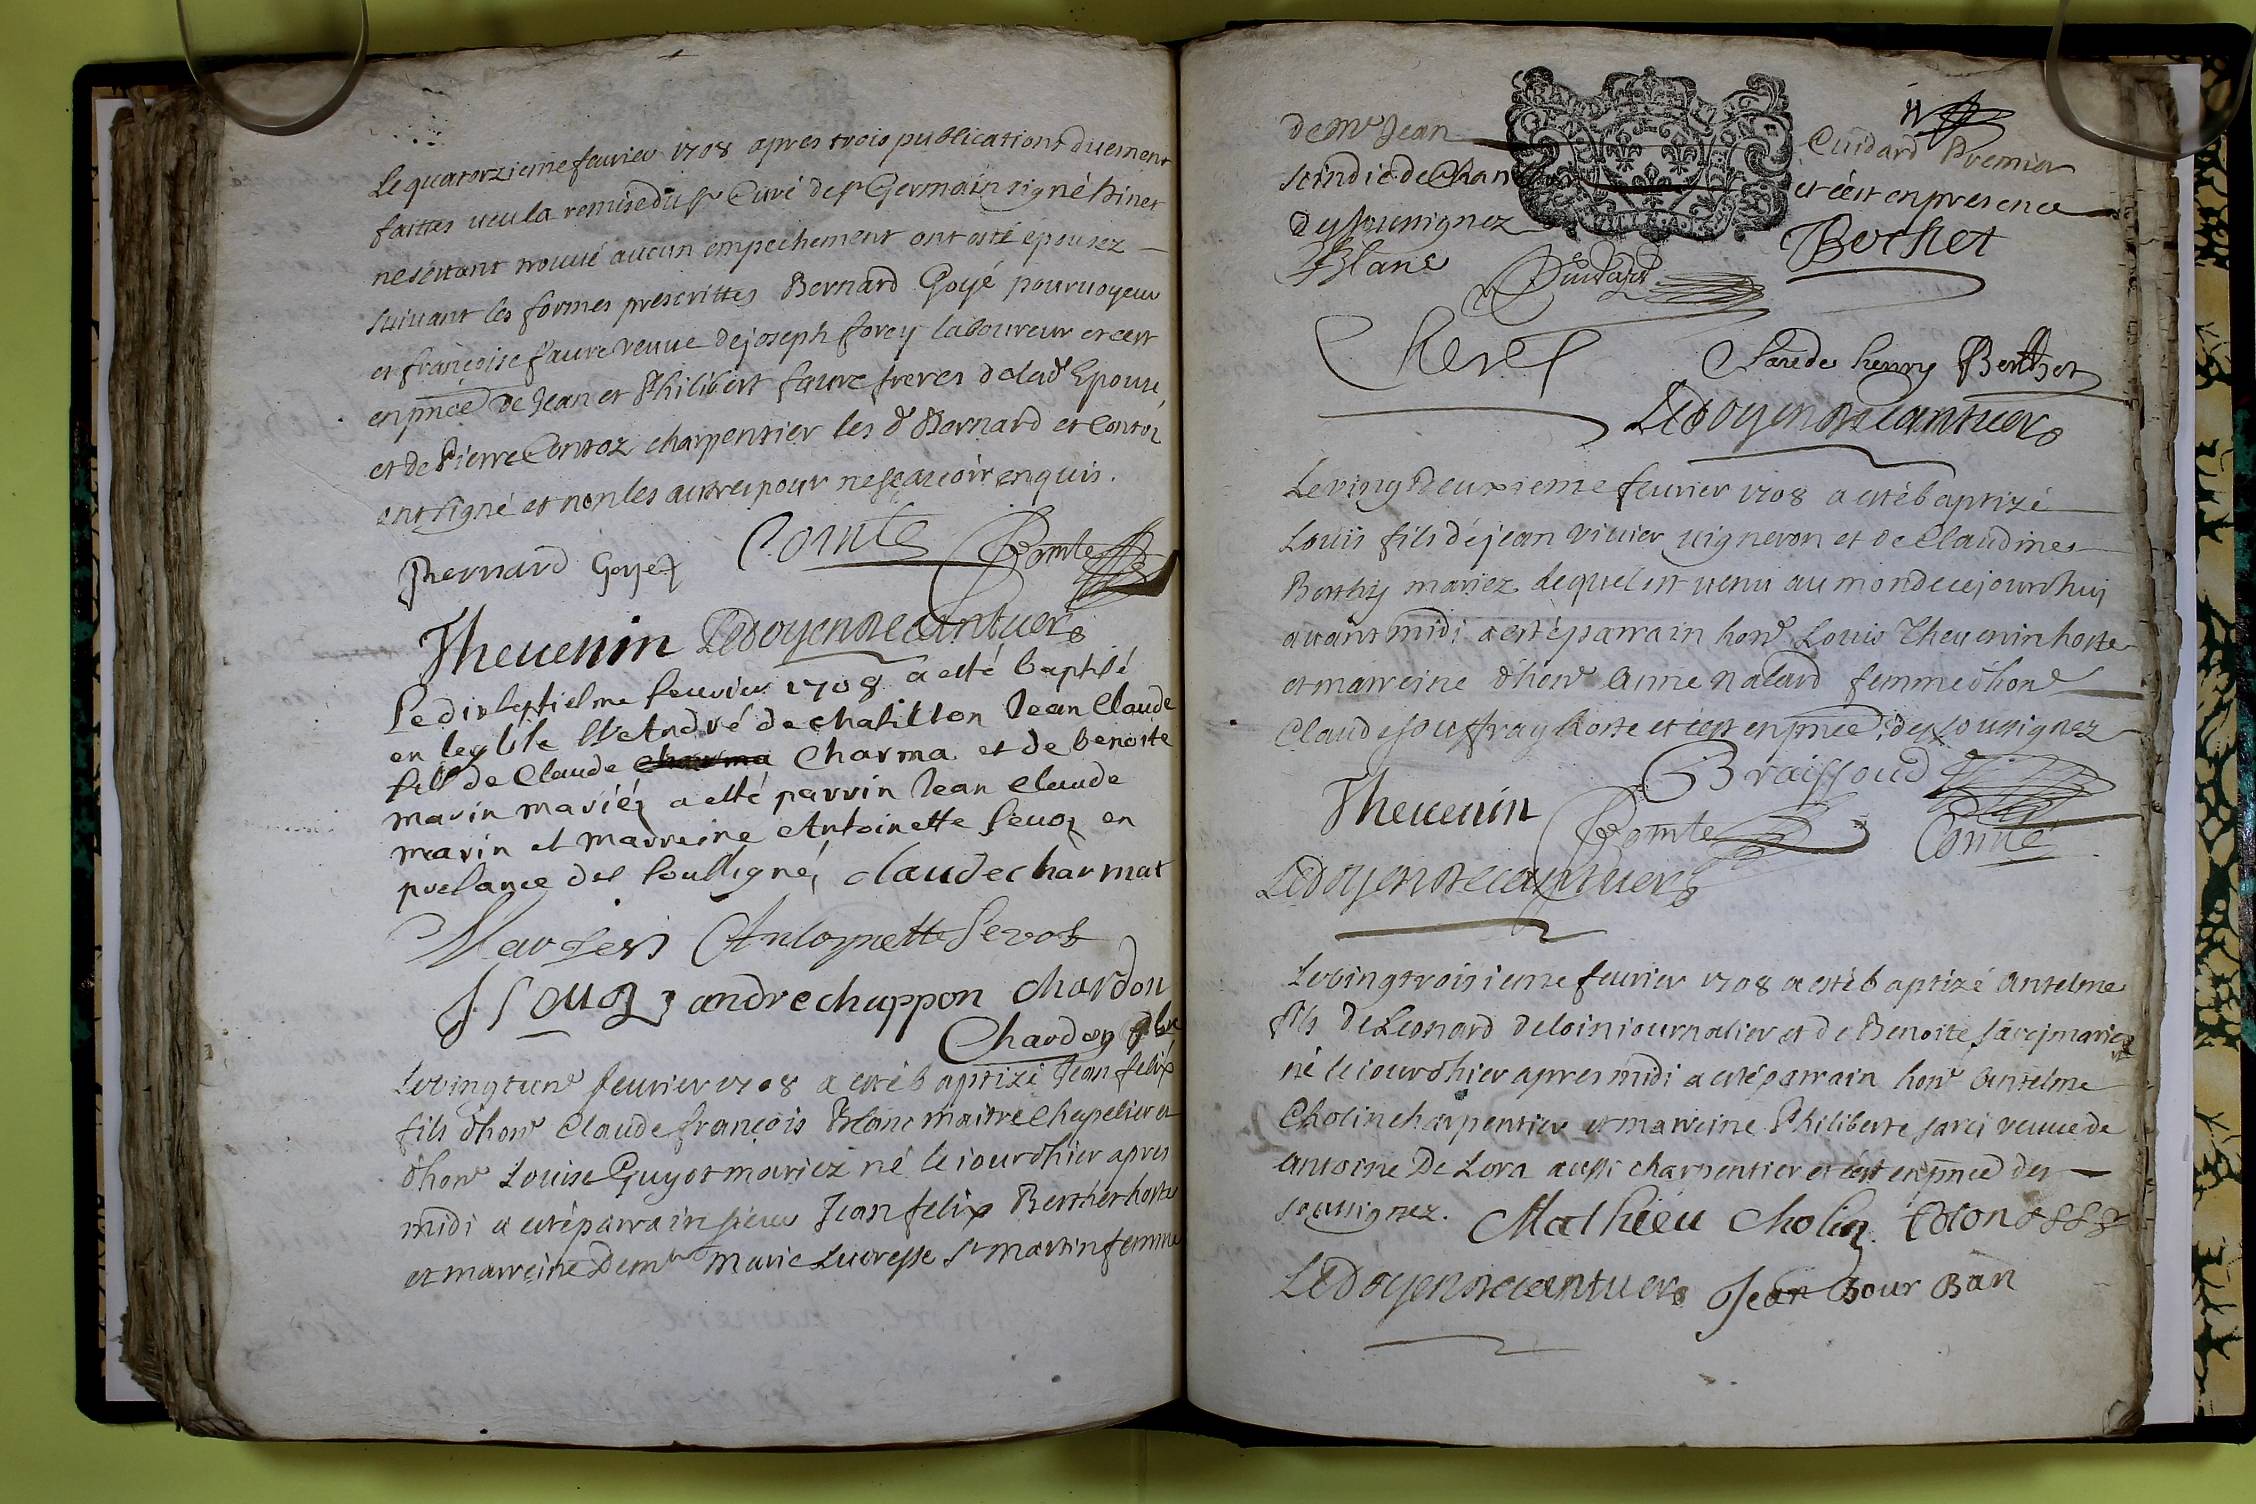 Le quatorzieme feurier 1708 apres trois publications duement
faittes veu la remise du Sr Curé de St Germain signé Binet
ne s'estant trouué aucun empechement ont esté epousez
suiuant les formes prescrittes Bernard Goyé pouruoyeur
et françoise faure veuue de joseph forey laboureur et c'est
en pnce de Jean et Philibert faure freres de lade Epouse,
et de Pierre Contoz charpentier les d Bernard et Contoz
ont signé et non les autres pour ne sçauoir enquis.
Bernard Goyet Comte Comte
Theuenin Ledoyen De
Le dixseptiesme feurier 1708 a esté baptisé
en leglise St André de chatillon Jean Claude
fils de Claude charma Charma et de benoite
marin mariéz a esté parrin Jean Claude
marin et marreine Antoinette Seuoz en
presance des soussignéz claude charmat
Antoynette Sevoz
J Seuoz andre chappon chardon
Chardon
Le vingt un feurier 1708 a esté baptizé Jean felix
fils d'hon Claude françois Blanc maitre Chapelier et
d'hon Louise Guyot mariez né le jour d'hier apres
midi a esté parrain sieur Jean felix Berthet hoste
et marreine Dem Marie Lucresse St martin femme
de Mr Jean Cuidard Premier
scindic de Chan et c'est en presence
des soussignez Bochet
Blanc Cuidard
Claude henry Berthet
Ledoyen De
Le vingt deuxieme feurier 1708 a esté baptizé
Louis fils de jean viuier uigneron et de Claudine
Berthy mariez lequel est venu au monde cejourdhuj
auant midi a esté parrain hon Louis Theuenin hoste
et marreine d'hon Anne Nalard femme d'hon
Claude jouffray hoste et c'est en pnce des sousignez
Theuenin Braissoud
Comte Comte
Ledoyen De
Le vingt troisieme feurier 1708 a esté baptizé Antelme
fils de Leonard deloin journalier et de Benoite sarej mariez
né le jour d'hier apres midi a esté parrain hon Antelme
Cholin charpentier et marreine Philiberte sarej veuue de
Antoine De Lora aussi charpentier et c'est en pnce des
soussignez. Mathieu Cholin
Ledoyen De Jean Bour Ban